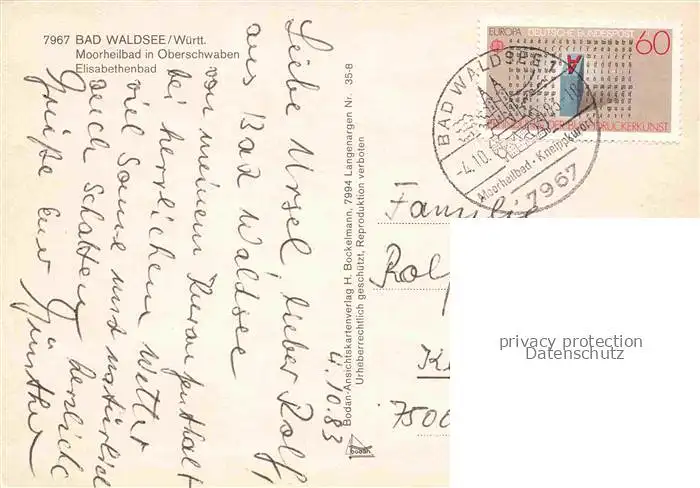 7967 BAD WALDSEE/Württ.
Moorheilbad in Oberschwaben
Elisabethenbad
Liebe Ursel, lieber Rolf,
aus Bad Waldsee
von meinem Kuraufenthalt
bei herrlichem Wetter
viel Sonne und natürlich
auch Schatten herzliche
Grüße Euer Günther
4.10.83
Bodan-Ansichtskartenverlag H. Bockelmann, 7994 Langenargen Nr. 35-8
Urheberrechtlich geschützt, Reproduktion verboten
bodan
EUROPA DEUTSCHE BUNDESPOST
60
DRUCKERKUNST
BAD WALDSEE 1
-4.10.83-18
Moorheilbad - Kneippkurort
7967
Familie
Rolf
7500
privacy protection
Datenschutz